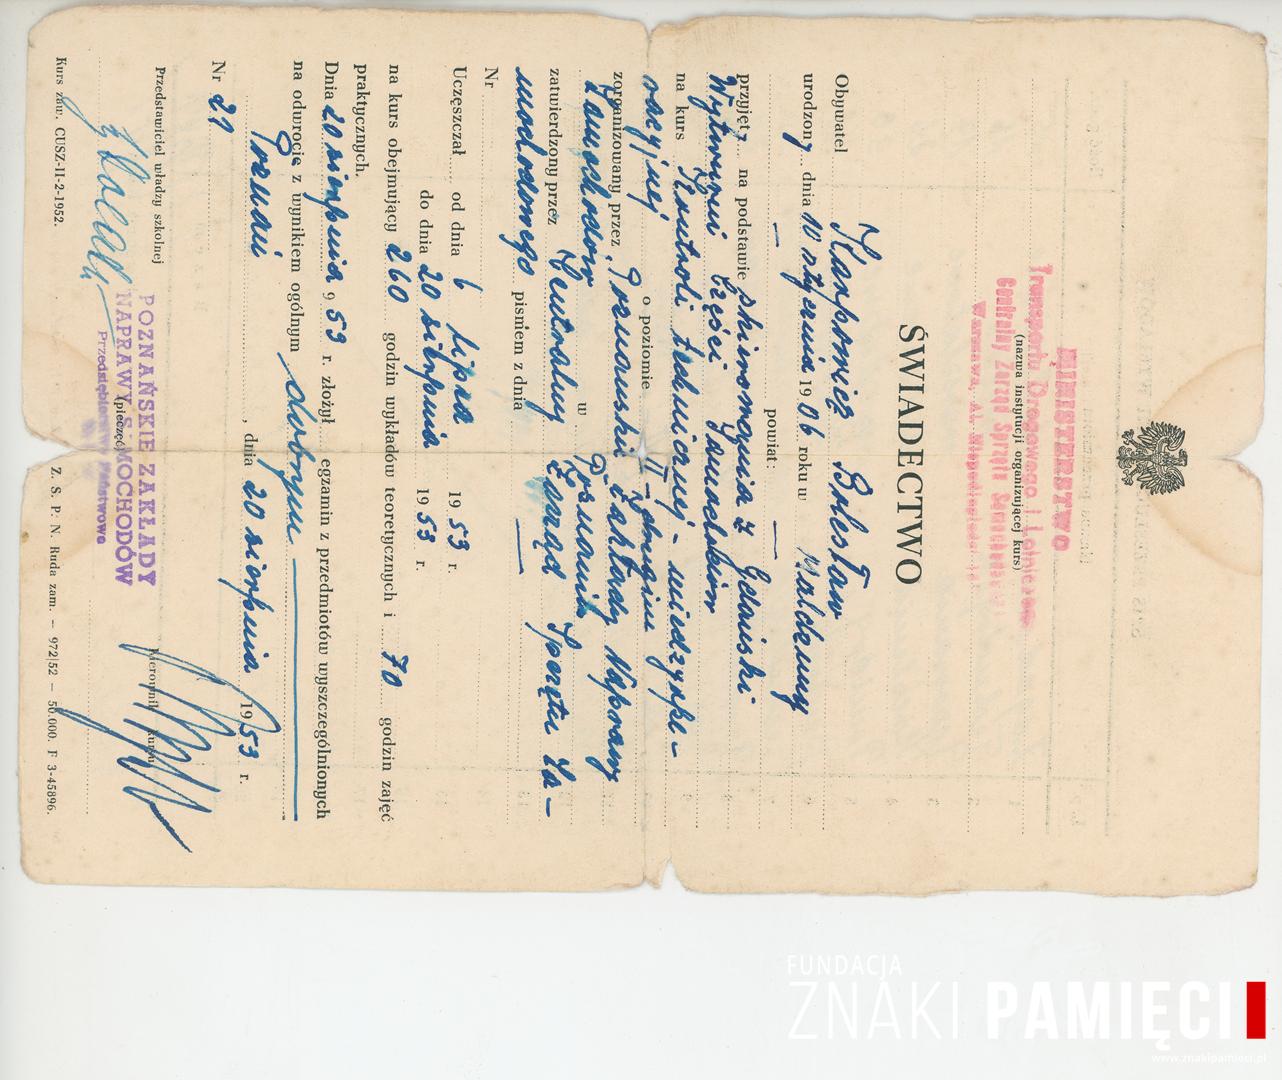 MINISTERSTWO
Transportu Drogowego i Lotniczego
(nazwa instytucji organizującej kurs)
Centralny Zarząd Sprzętu Samochodowego
Warszawa, Al. Niepodległości
ŚWIADECTWO
Obywatel Karpowicz Bolesław
urodzony dnia 10 stycznia 1906 roku w Małdzuny
— powiat: —
przyjęty na podstawie skierowania z Gdański
Wytwórni Części Samochodów
na kurs Kontroli technicznej - międzyope-
racyjnej o poziomie II - drugim
zorganizowany przez Poznańskie Zakłady Naprawy
Samochodów w Poznaniu
zatwierdzony przez Centralny Zarząd Sprzętu Sa-
mochodowego pismem z dnia —
Nr
Uczęszczał od dnia 6 lipca 1953 r.
do dnia 20 sierpnia 1953 r.
na kurs obejmujący 260 godzin wykładów teoretycznych i 70 godzin zajęć
praktycznych.
Dnia 20 sierpnia 953 r. złożył egzamin z przedmiotów wyszczególnionych
na odwrocie z wynikiem ogólnym dobrym
Poznań, dnia 20 sierpnia 1953 r.
Nr 29
Przedstawiciel władzy szkolnej
Kierownik kursu
POZNAŃSKIE ZAKŁADY
NAPRAWY SAMOCHODÓW
(pieczęć)
Przedsiębiorstwo Państwowe
Kurs zaw. CUSZ-II-2-1952.
Z. S. P. N. Ruda zam. — 972|52 — 50.000. F 3-45896.
FUNDACJA
ZNAKI PAMIĘCI
www.znakipamieci.pl